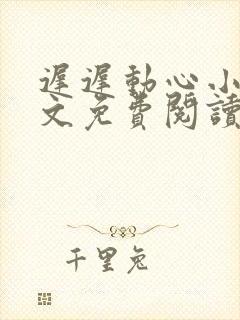 遲遲動心小
文免費閱讀
千里兔